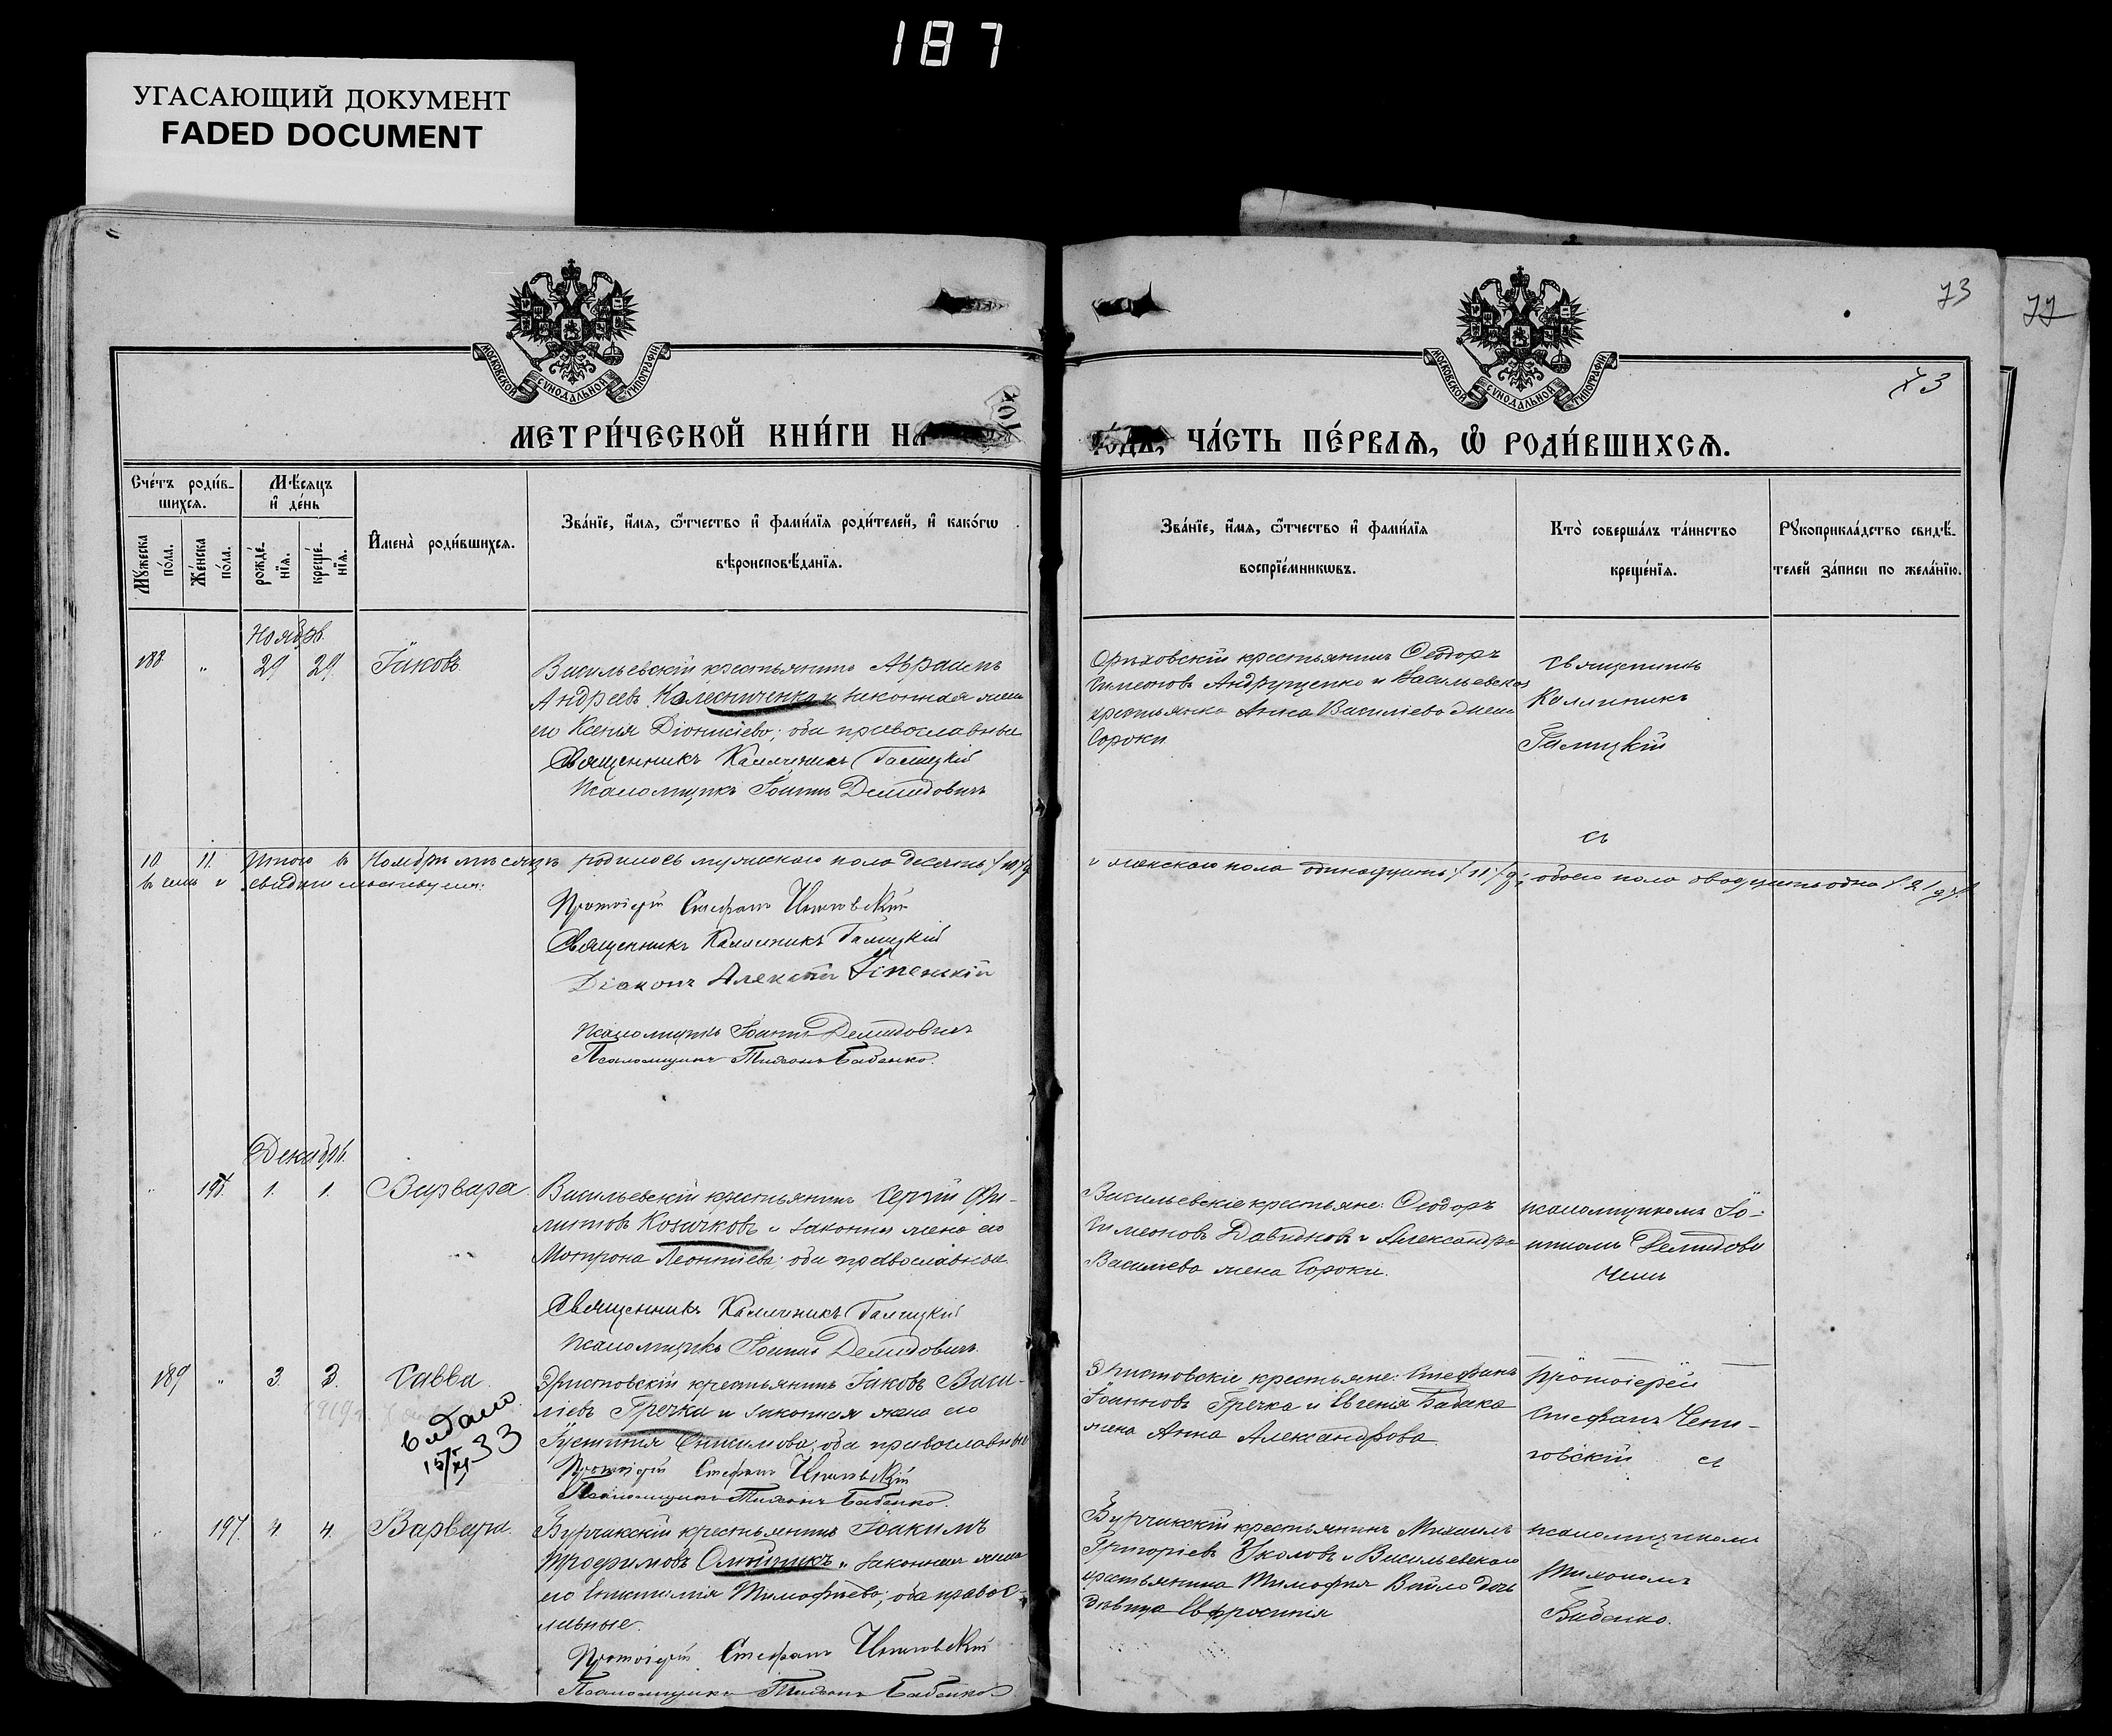 187
УГАСАЮЩИЙ ДОКУМЕНТ
FADED DOCUMENT
73
77
73
МОСКОВСКОЙ СѴНОДАЛЬНОЙ ТИПОГРАФІИ
МОСКОВСКОЙ СѴНОДАЛЬНОЙ ТИПОГРАФІИ
МЕТРИ́ЧЕСКОЙ КНИ́ГИ НА
ГОДЪ, ЧА́СТЬ ПЕ́РВАѦ, Ѡ РОДИ́ВШИХСѦ.
Сче́тъ роди́в-
шихсѧ.
Мѣсѧцъ
и де́нь
Мꙋжеска
по́ла.
Же́нска
по́ла.
рожде́-
нїѧ.
креще́-
нїѧ.
Имена̀ роди́вшихсѧ.
Зва́нїе, и́мѧ, ѻ́тчество и фами́лїѧ роди́телей, и како́гѡ
вѣроисповѣ́данїѧ.
Зва́нїе, и́мѧ, ѻ́тчество и фами́лїѧ
воспрїе́мникѡвъ.
Кто̀ соверша́лъ та́инство
креще́нїѧ.
Рꙋкоприкла́дство свидѣ́-
телей за́писи по жела́нїю.
Ноябрь.
188 " 29 29 Іаковъ
Васильевскій крестьянинъ Авраамъ
Андреевъ Колесниченко и законная жена
его Ксенія Діонисіева; оба православные
Священникъ Каллиникъ Галицкій
Псаломщикъ Іоаннъ Демидовичъ
Ореховскій крестьянинъ Ѳеодоръ
Симеоновъ Андрущенко и Васильевская
крестьянка Анна Василіева жена
Сороки
Священникъ
Каллиникъ
Галицкій
съ
10 11 Итого въ Ноябрѣ мѣсяцѣ родилось мужескаго пола десять /10/
и женскаго пола одинадцать /11/ обоего пола двадцать одна /21/
въ чемъ и свидѣтельствуемъ:
Протоіерей Стефанъ Чепиговскій
Священникъ Каллиникъ Галицкій
Діаконъ Алексій
Псаломщикъ Іоаннъ Демидовичъ
Псаломщикъ Тихонъ Бабенко.
Декабрь.
" 1. 1. Варвара
Васильевскій крестьянинъ Сергій Фи-
липповъ Козачковъ и законная жена его
Матрона Леонтіева; оба православные.
Священникъ Каллиникъ Галицкій
Псаломщикъ Іоаннъ Демидовичъ.
Васильевскіе крестьяне: Ѳеодоръ
Симеоновъ Давидковъ и Александра
Василіева жена Сороки.
псаломщикомъ Іо-
анномъ Демидови
чемъ
189 " 3. 3. Савва
видано
15/XI 33
Эристовскій крестьянинъ Іаковъ Васи-
ліевъ Гречка и законная жена его
Іустинія Онисимова; оба православные
Протоіерей Стефанъ Чепиговскій
Псаломщикъ Тихонъ Бабенко.
Эристовскіе крестьяне: Стефанъ
Іоанновъ Гречка и Евгенія Бабака
жена Анна Александрова.
Протоіерей
Стефанъ Чепи-
говскій съ
" 197. 4. 4. Варвара.
Бурчакскій крестьянинъ Іоакимъ
Трофимовъ Олейникъ и законная жена
его Епистимія Тимофѣева; оба правос-
лавные.
Протоіерей Стефанъ Чепиговскій
Псаломщикъ Тихонъ Бабенко
Бурчакскій крестьянинъ Михаилъ
Григоріевъ и Васильевскаго
крестьянина Тимофея Вайло дочь
дѣвица Евфросинія
псаломщикомъ
Тихономъ
Бабенко.